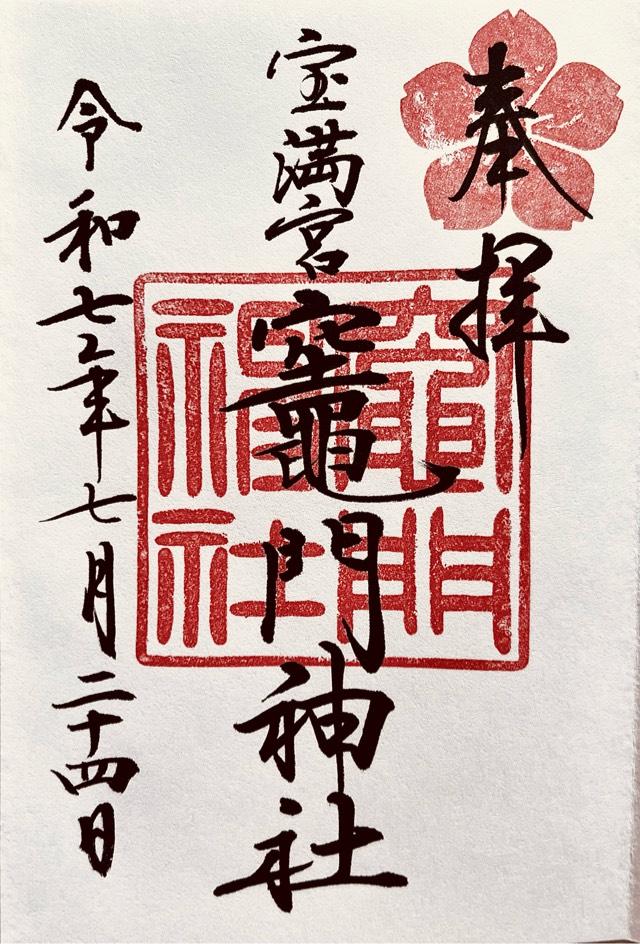 奉拝
宝満宮
竈門神社
令和七年七月二十四日
竈門
神社